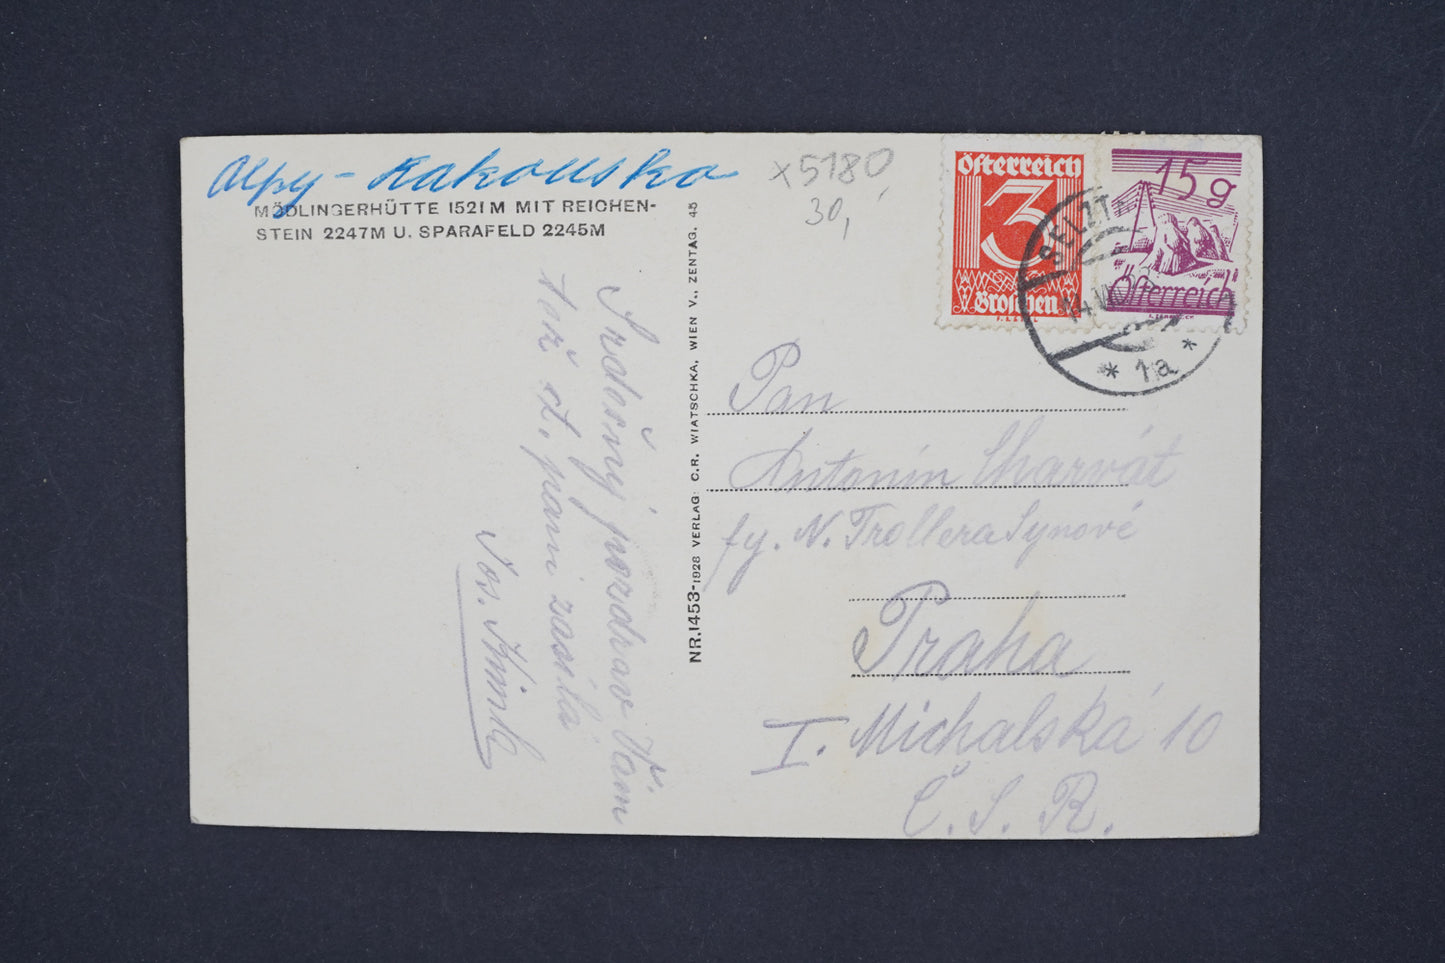 Alpy - Rakousko
MÖDLINGERHÜTTE 1521M MIT REICHEN-
STEIN 2247M U. SPARAFELD 2245M
x5180,
30,
Österreich
3
Groschen
15 g
Österreich
SELZT
14.VI
* 1a *
NR.1453-1928 VERLAG: C.R. WIATSCHKA, WIEN V., ZENTAG. 45
Srdečný pozdrav Vám
též ct. paní zasílá
Jos.
Pan
Antonín Charvát
fy. N. Trollera Synové
Praha
I. Michalská 10
Č. S. R.